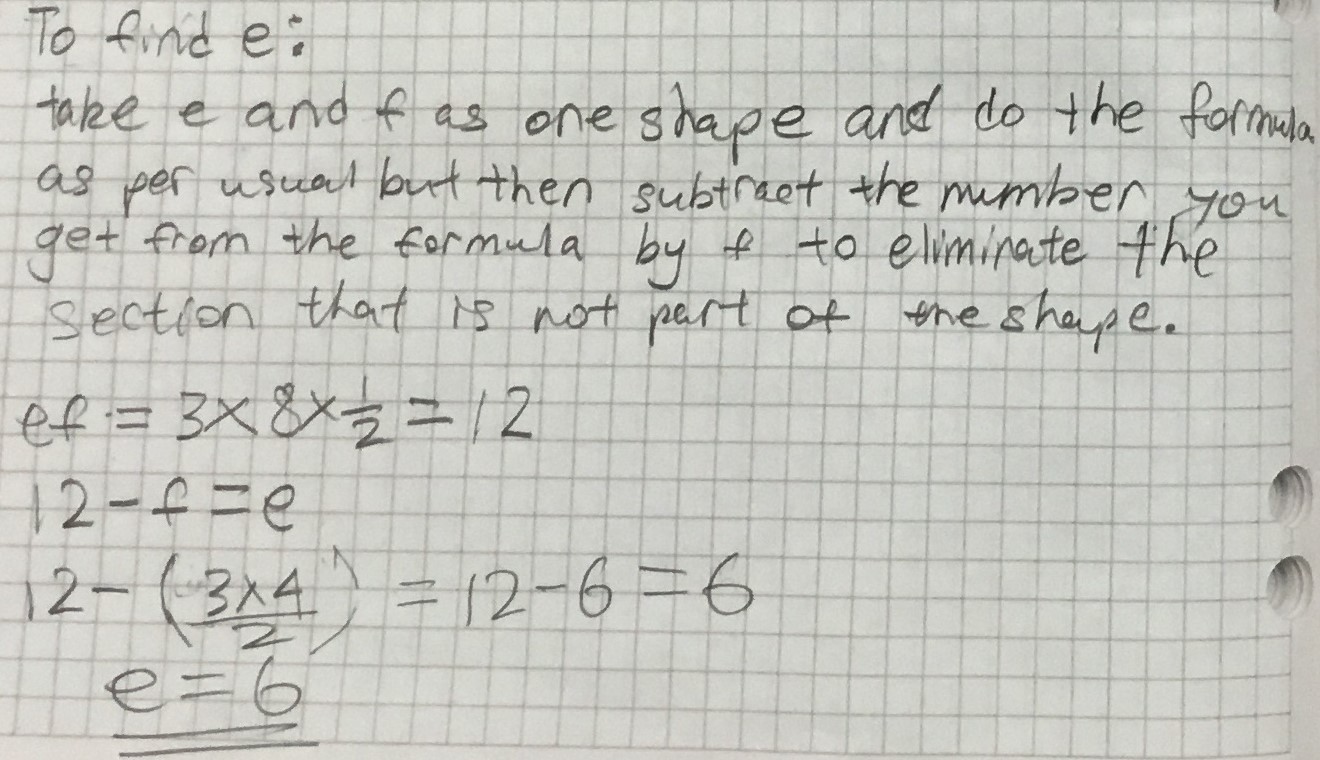 To find e:
take e and f as one shape and do the formula
as per usual but then subtract the number you
get from the formula by f to eliminate the
section that is not part of the shape.
ef = 3 × 8 × 1/2 = 12
12 - f = e
12 - (3×4/2) = 12 - 6 = 6
e = 6